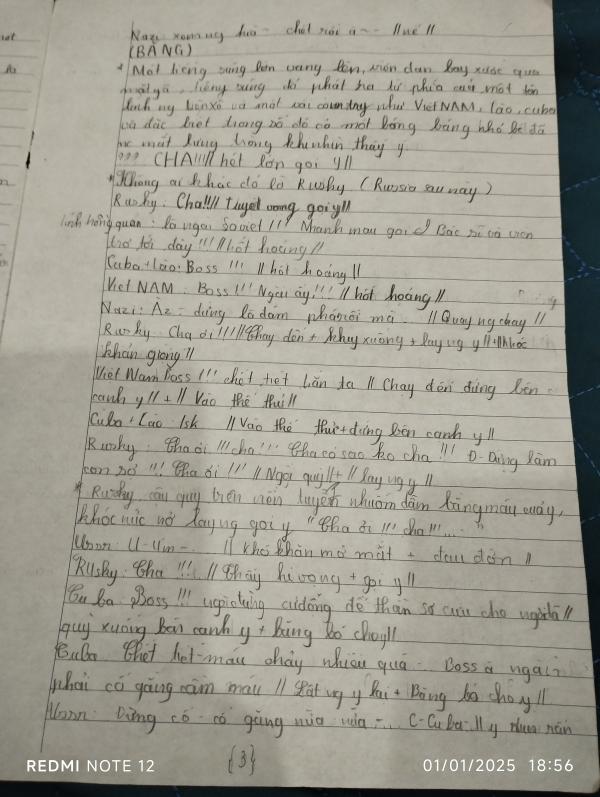 Nazi: xem ng kìa - chết rồi à -- // né //
(BẰNG)
* Một tiếng súng lớn vang lên, viên đạn bay xược qua
mặt gã, tiếng súng đó phát ra từ phía của một tên
lính ng Liên Xô và một vài country như VietNAM, Lào, cuba
và đặc biệt trong số đó có một bóng băng nhỏ bé đã
mắt lưng tròng khi nhìn thấy y.
??? CHA!!! // hét lớn gọi y //
* Không ai khác đó là Rusky (Russia sau này)
Rusky: Cha!!! // tuyệt vọng gọi y //
lính hồng quân: là ngài Soviet !!! Nhanh mau gọi Bác sĩ và viện
trợ tới đây !!! // hốt hoảng //
Cuba + Lào: Boss !!! // hốt hoảng //
Viet NAM: Boss !!! Ngài ấy !!! // hốt hoảng //
Nazi: Àz - đúng là đám phá rối mà .. // Quay ng chạy //
Rusky: Cha ơi !!! // Chạy đến + khụy xuống + lay ng y // + // khóc
khàn giọng //
Viet Nam: Boss !!! chết tiệt hắn ta // Chạy đến đứng bên
cạnh y // + // Vào thế thủ //
Cuba + Lào: Tsk // Vào thế thủ + đứng bên cạnh y //
Rusky: Cha ơi !!! cha !!! Cha có sao ko cha !!! Đ-Đừng làm
con sợ !!! Cha ơi !!! // Ngồi quỳ // + // lay ng y //
* Rusky cậu quỳ trên nền tuyết nhuốm đẫm bằng máu của y,
khóc nức nở lay ng gọi y "Cha ơi !!! cha !!! ... "
Ussr: U-Um -.. // khó khăn mở mắt + đau đớn //
Rusky: Cha !!! // Thấy hi vọng + gọi y //
Cu ba: Boss !!! ngài đừng cử động để thần sơ cứu cho ngài đã //
quỳ xuống bên cạnh y + băng bó cho y //
Cuba: Chết hết máu chảy nhiều quá ... Boss à ngài
phải cố gắng cầm máu // Lật ng y lại + Băng bó cho y //
Ussr: Đừng có - cố gắng nữa nữa -... C-Cu ba .. // y nhăn nhăn
{3}
REDMI NOTE 12
01/01/2025 18:56